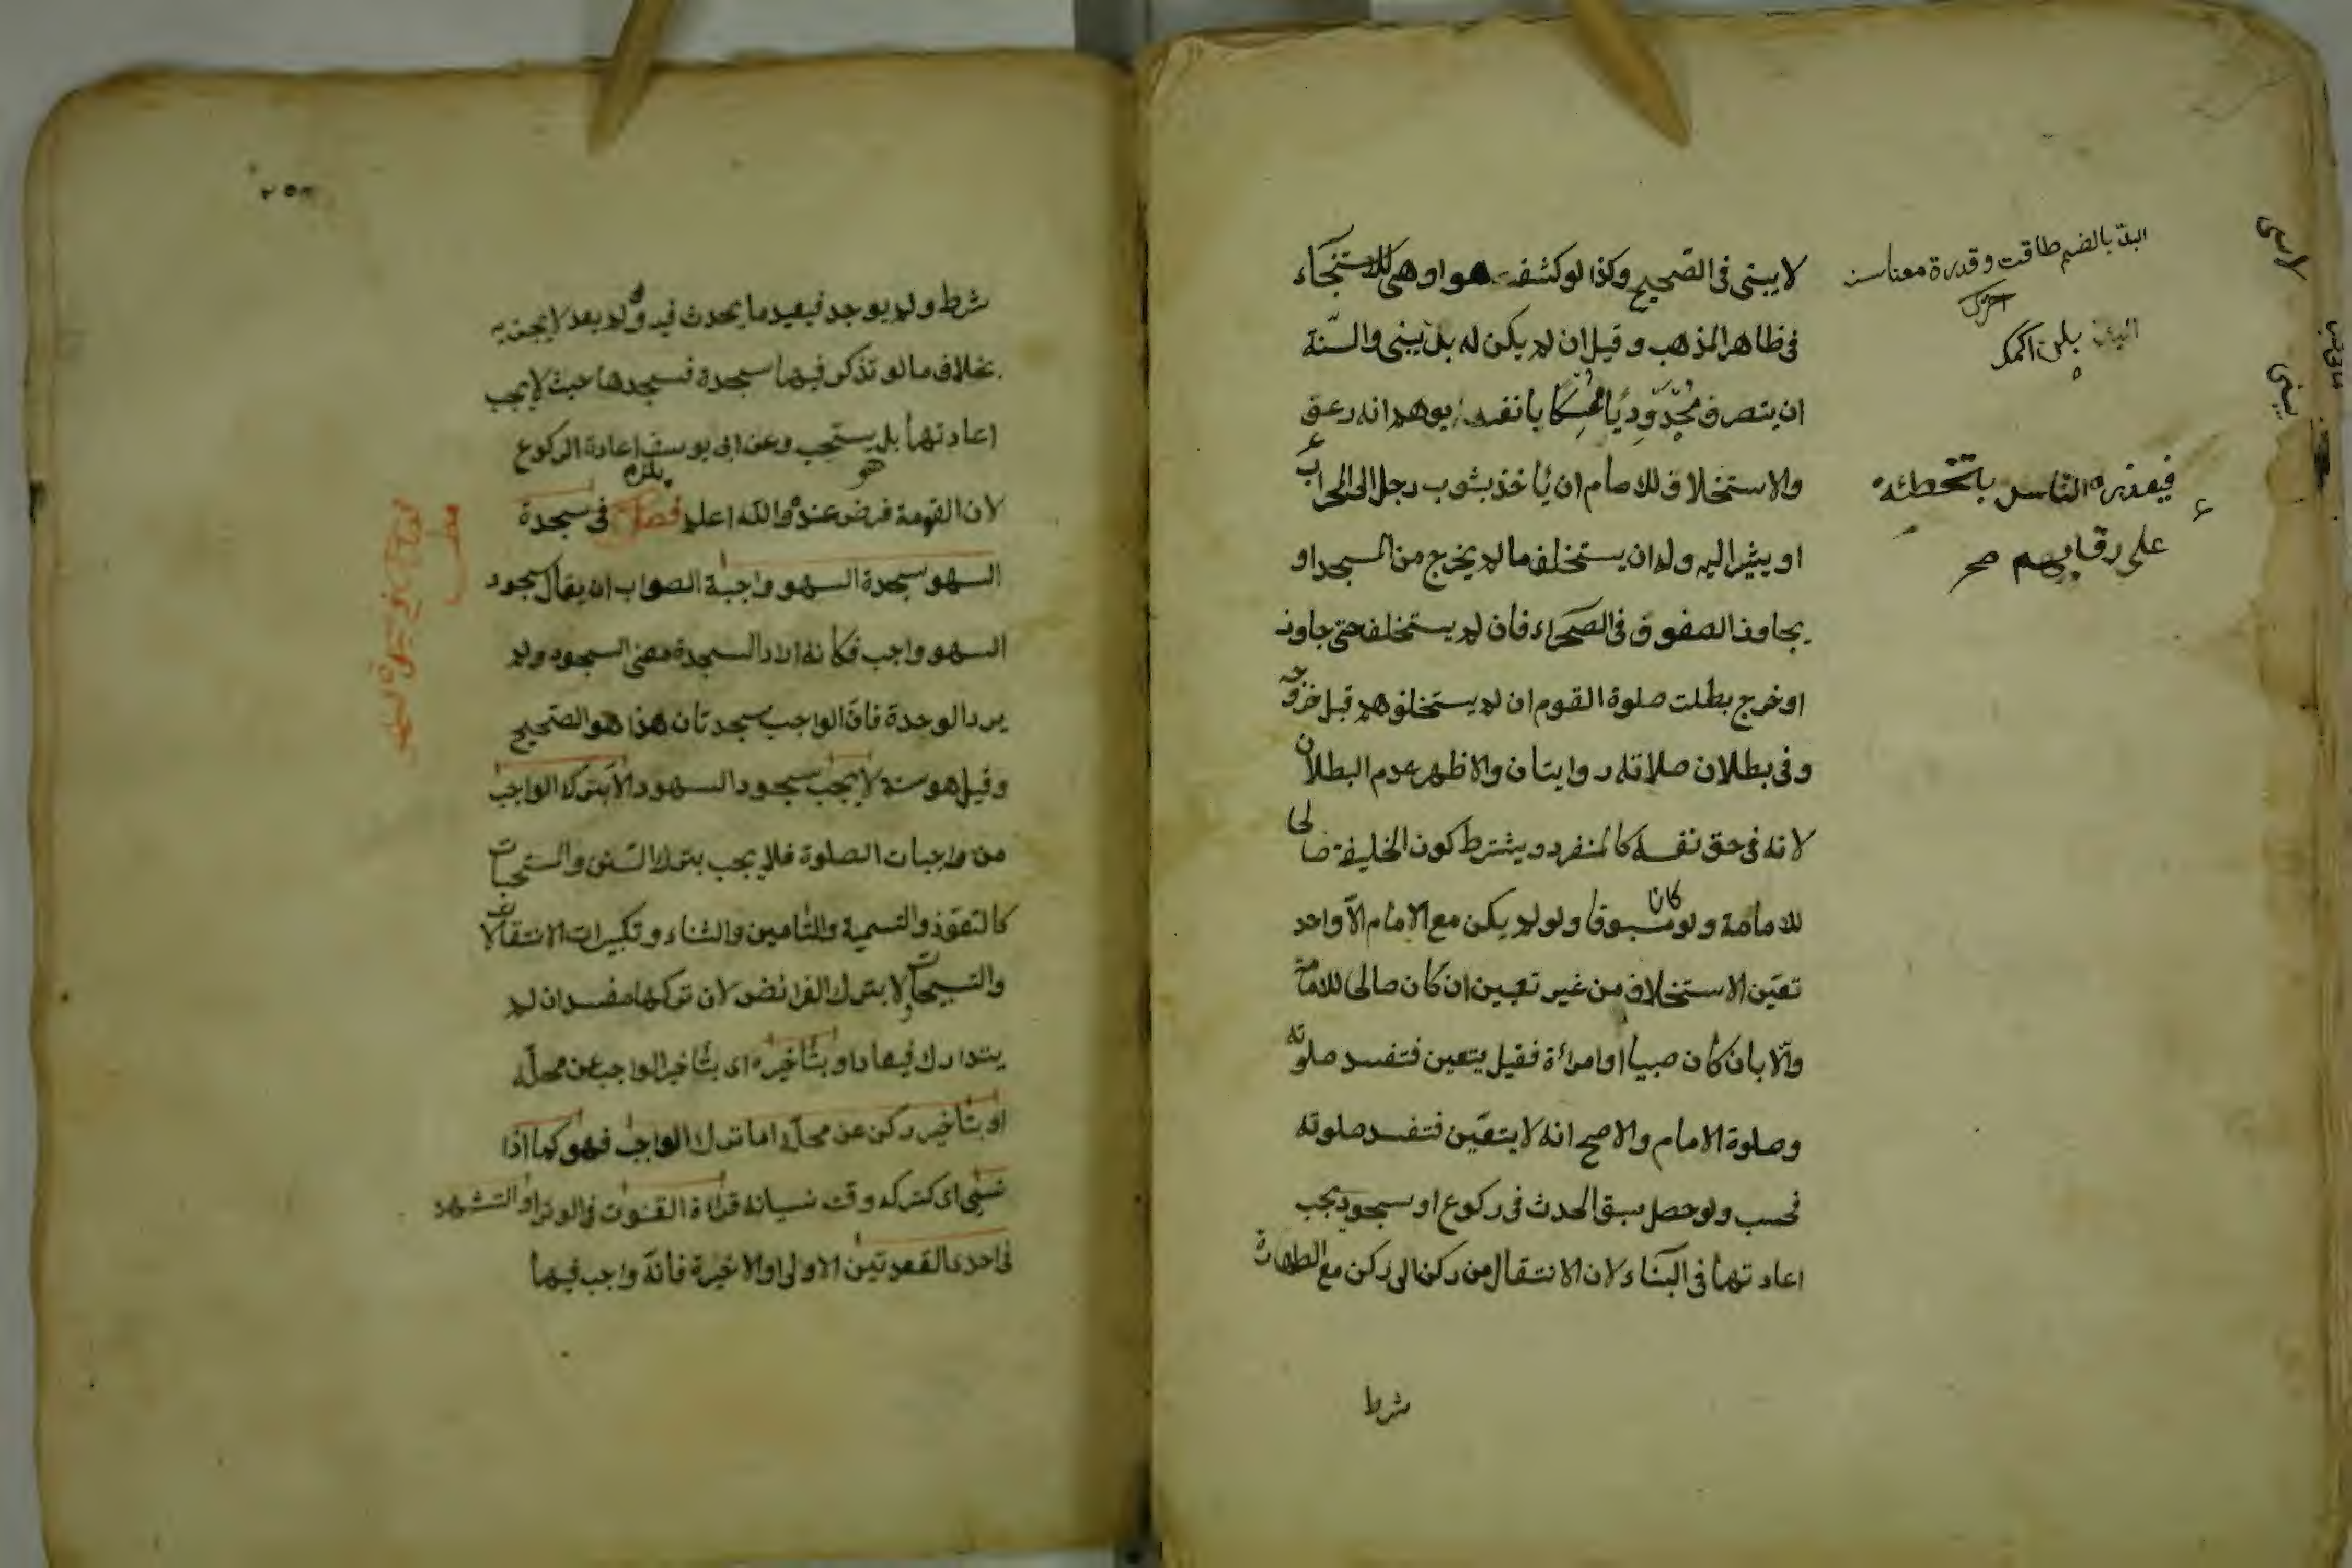 لا يبنى فى الصّحيح وكذا لو كشفت هو او هى للاستنجآء
فى ظاهر المذهب وقيل ان لم يكن له بدّ يبنى والسّنّة
ان ينصرف مُحْدَوْدِبًا مُمْسِكًا بانفه يوهم انه رعف
والاستخلاف للامام ان يأخذ بثوب رجل الى المحراب
او يشير اليه وله ان يستخلف ما لم يخرج من المسجد او
يجاوز الصفوف فى الصحراء فان لم يستخلف حتى جاوز
او خرج بطلت صلوة القوم ان لم يستخلفوهم قبل خروجه
وفى بطلان صلاته روايتان والاظهر عدم البطلان
لانه فى حق نفسه كالمنفرد ويشترط كون الخليفة صالحا
للامامة ولو كان مسبوقا ولو لم يكن مع الامام الّا واحد
تعيّن الاستخلاف من غير تعيين ان كان صالحا للامامة
والّا بان كان صبيا او امرأة فقيل يتعين فتفسد صلوته
وصلوة الامام والاصح انه لا يتعيّن فتفسد صلوته
فحسب ولو حصل سبق الحدث فى ركوع او سجود يجب
اعادتهما فى البنآء لان الانتقال من ركن الى ركن مع الطهارة
شرط
البدّ بالضم طاقت وقدرة معناسنه
اخرى
بلن اكمك
فيعذره الناس
على رقابهم صح
شرط ولم يوجد فيعيد ما يحدث فيه ولو لم يعد لا يجزيه
بخلاف ما لو تذكر فيهما سجدة فسجدها حيث لا يجب
اعادتهما بل يستحب وعن ابى يوسف يلزم اعادة الركوع
لان القومة فرض عنده هو والله اعلم فصل فى سجدة
السهو سجدة السهو واجبة الصواب ان يقال سجود
السهو واجب فكانه اراد السجدة معنى السجود ولم
يرد الوحدة فانّ الواجب سجدتان هذا هو الصّحيح
وقيل هو سنة لا يجب سجود السهو الّا بترك الواجب
من واجبات الصلوة فلا يجب بترك السّنن والمستحبات
كالتعوّذ والتسمية والتّامين والثناء وتكبيرات الانتقالات
والتسبيحات ولا بترك الفرائض لان تركها مفسد ان لم
يتدارك فيها او بتأخيره اى بتأخير الواجب عن محلّه
او بتأخير ركن عن محلّه اما ترك الواجب فهو كما اذا
نسى اى كتركه وقت نسيانه قراءة القنوت فى الوتر او التشهد
فى احدى القعدتين الاولى او الاخيرة فانّه واجب فيهما
مطلب